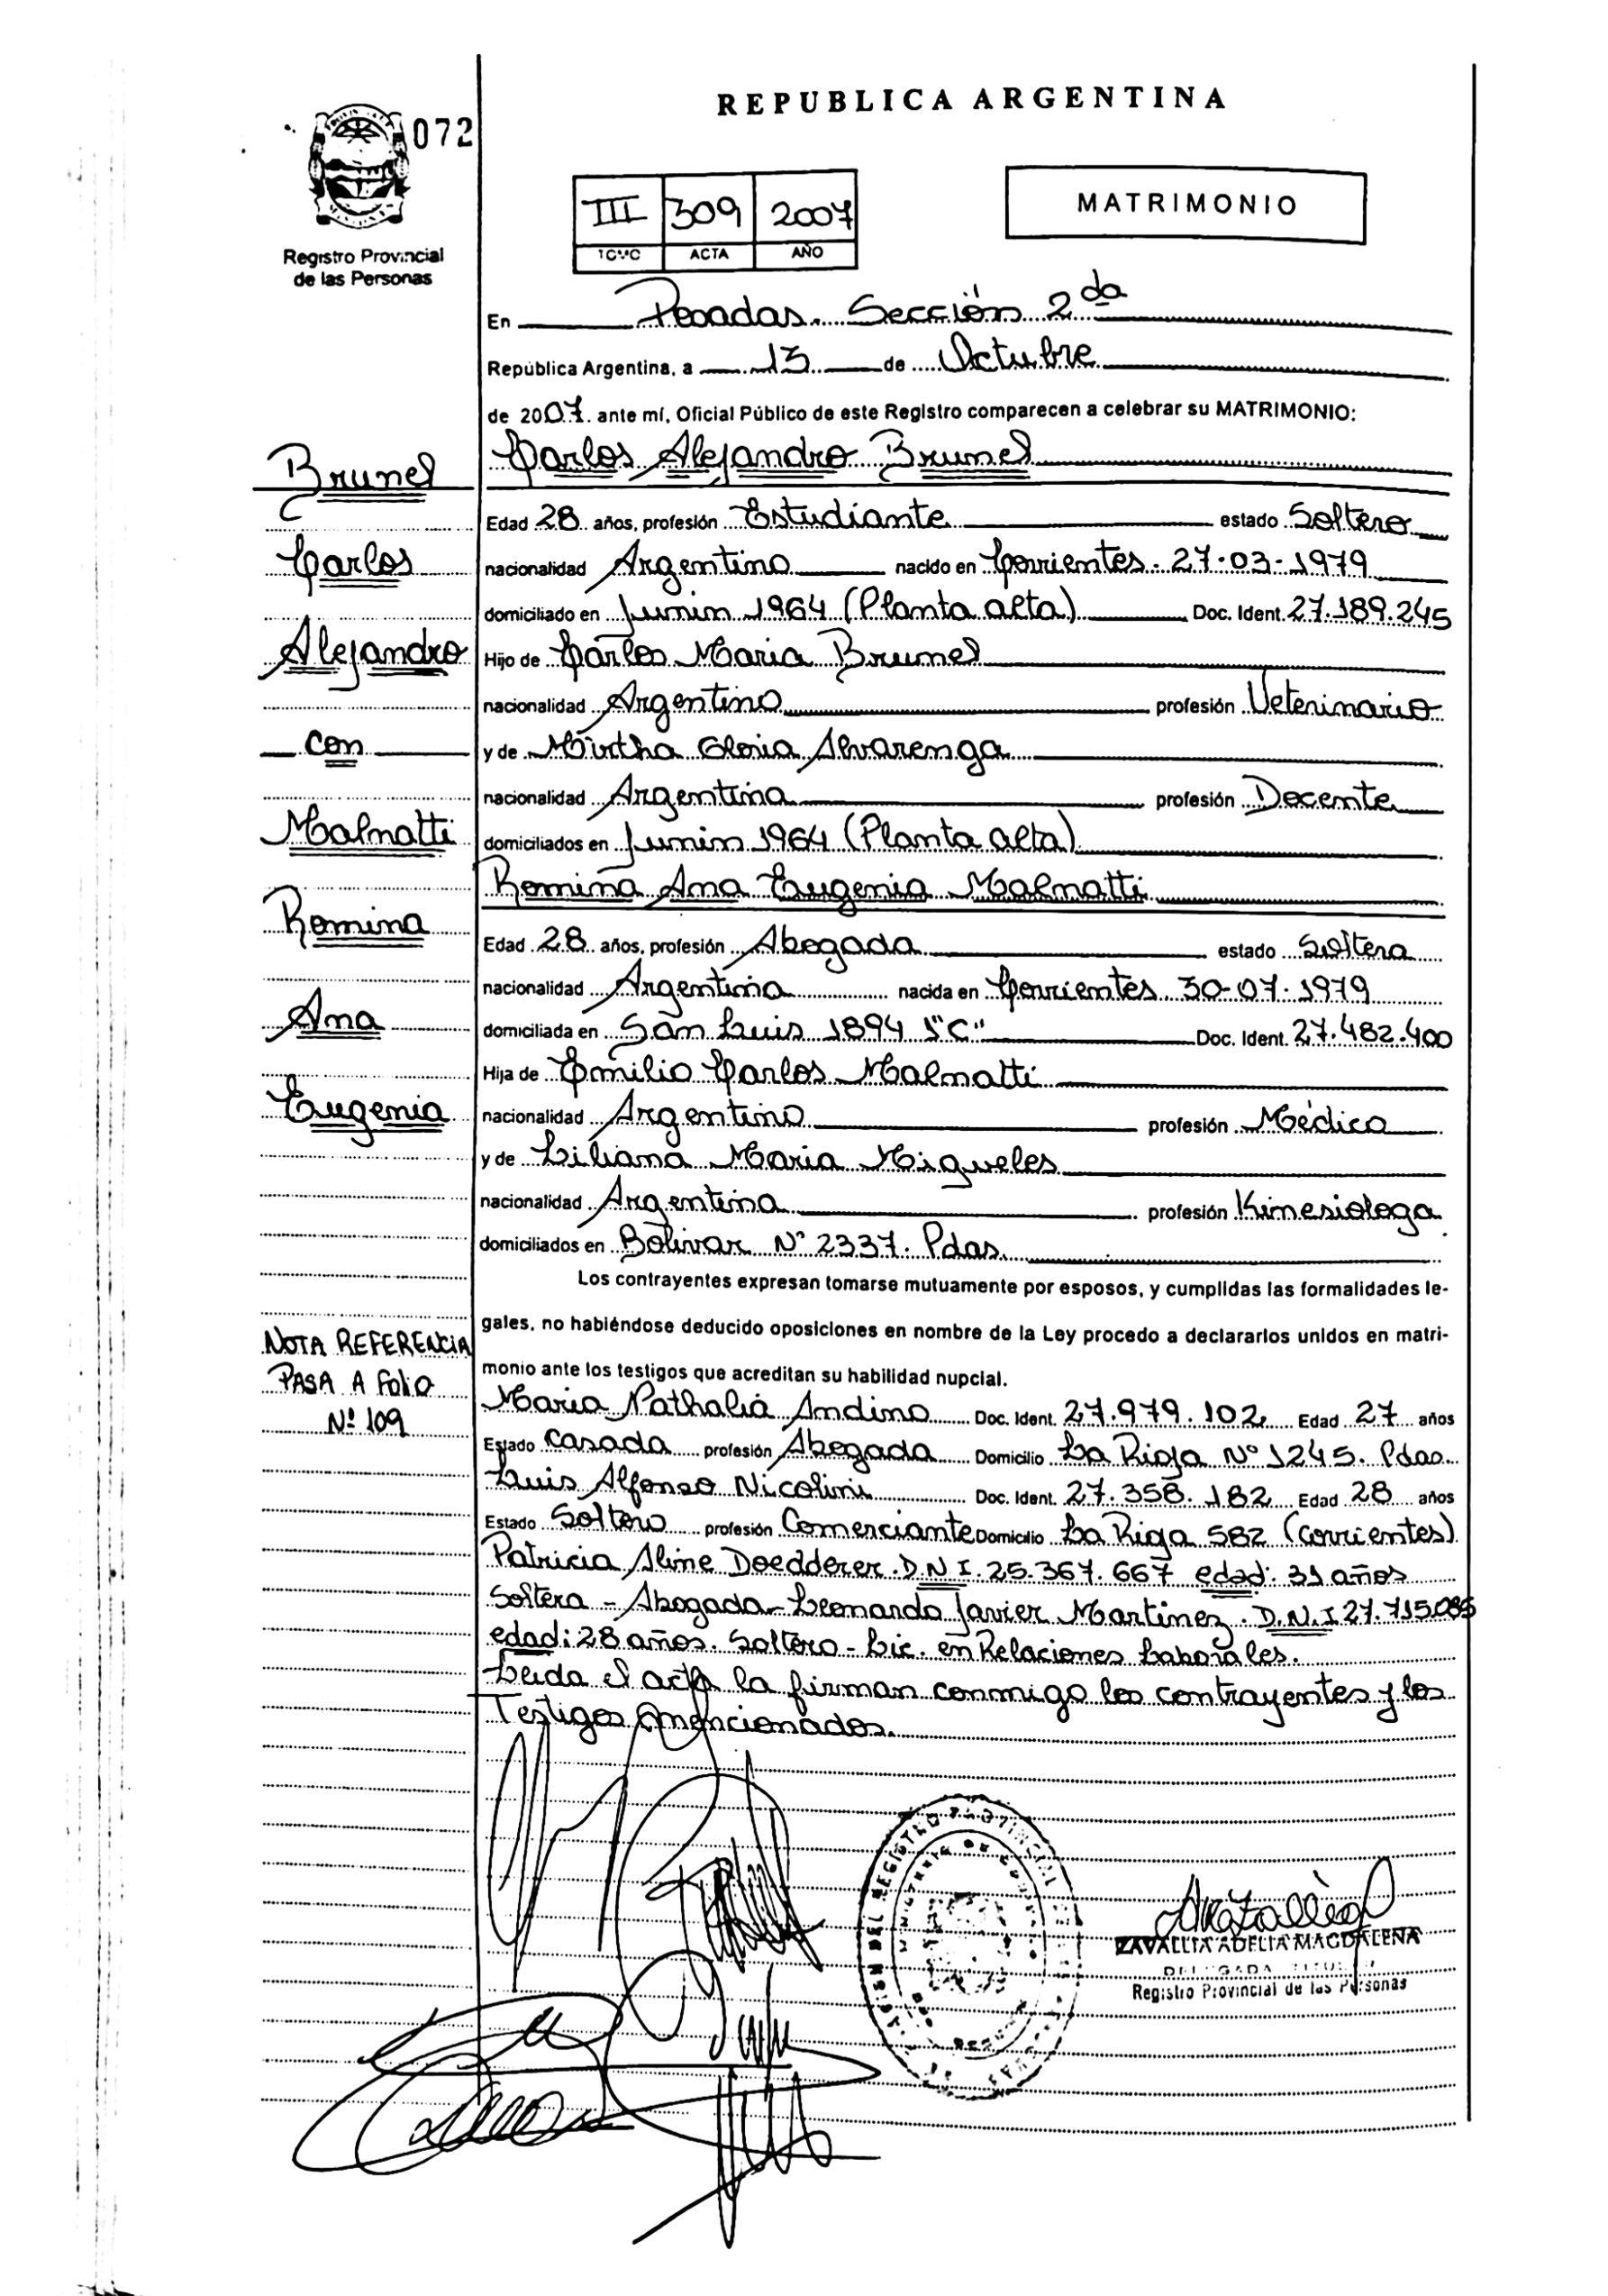 REPUBLICA ARGENTINA
072
Registro Provincial
de las Personas
MATRIMONIO
III 309 2007
TOMO ACTA AÑO
En Posadas. Sección 2da
República Argentina, a 13 de Octubre
de 2007. ante mí, Oficial Público de este Registro comparecen a celebrar su MATRIMONIO:
Brunel
Carlos
Alejandro
con
Malnatti
Romina
Ana
Eugenia
NOTA REFERENCIA
PASA A Folio
Nº 109
Carlos Alejandro Brunel
Edad 28 años, profesión Estudiante estado Soltero
nacionalidad Argentino nacido en Corrientes. 27-03-1979
domiciliado en Junin 1964 (Planta alta) Doc. Ident. 27.189.245
Hijo de Carlos Maria Brunel
nacionalidad Argentino profesión Veterinario
y de Mirtha Gloria Alvarenga
nacionalidad Argentina profesión Docente
domiciliados en Junin 1964 (Planta alta)
Romina Ana Eugenia Malnatti
Edad 28 años, profesión Abogada estado Soltera
nacionalidad Argentina nacida en Corrientes 30-07-1979
domiciliada en San Luis 1894 "C" Doc. Ident. 27.482.400
Hija de Emilio Carlos Malnatti
nacionalidad Argentino profesión Médico
y de Liliana Maria Migueles
nacionalidad Argentina profesión Kinesiologa
domiciliados en Bolivar Nº 2337. Pdas.
Los contrayentes expresan tomarse mutuamente por esposos, y cumplidas las formalidades le-
gales, no habiéndose deducido oposiciones en nombre de la Ley procedo a declararlos unidos en matri-
monio ante los testigos que acreditan su habilidad nupcial.
Maria Nathalia Andino Doc. Ident. 27.979.102 Edad 27 años
Estado Casada profesión Abogada Domicilio La Rioja Nº 1245. Pdas.
Luis Alfonso Nicolini Doc. Ident. 27.358.182 Edad 28 años
Estado Soltero profesión Comerciante Domicilio La Rioja 582 (Corrientes)
Patricia Aline Doedderer. D.N.I. 25.367.667 edad: 31 años
Soltera - Abogada - Leonardo Javier Martinez. D.N.I 27.715.085
edad: 28 años. Soltero - Lic. en Relaciones Laborales.
Leida el acta la firman conmigo los contrayentes y los
Testigos mencionados.
ZAVALLIA ADELIA MAGDALENA
Registro Provincial de las Personas